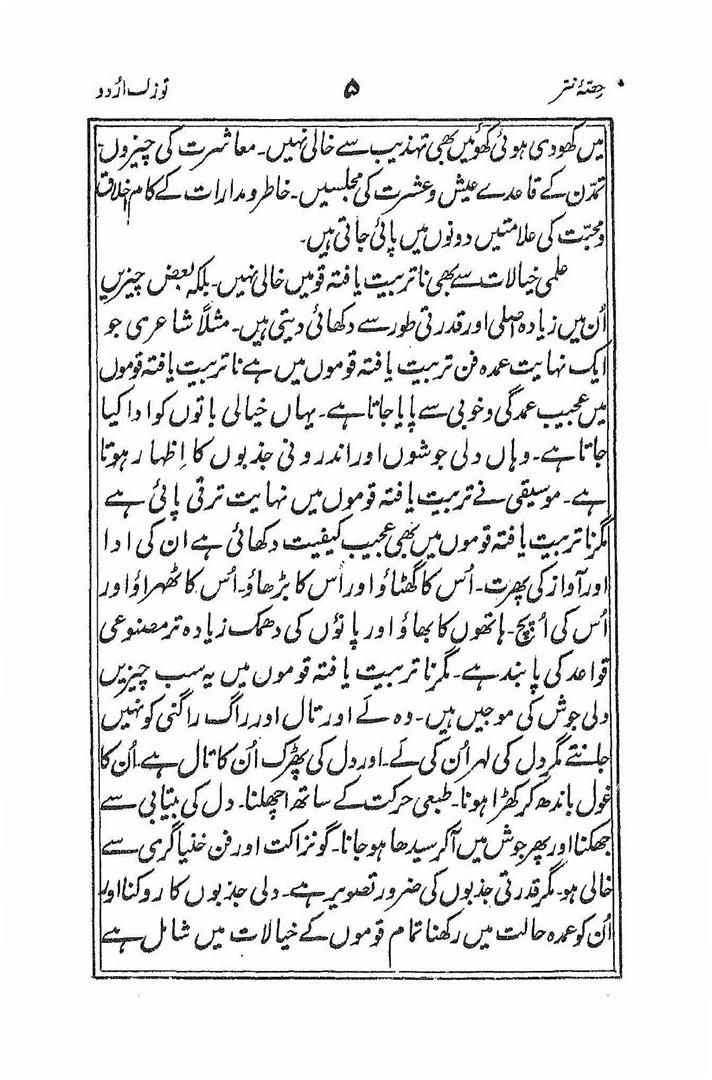 حصّۂ نثر ۵ توزک اُردو
میں کھودی ہوئی کھوئیں بھی تہذیب سے خالی نہیں۔ معاشرت کی چیزوں
تمدّن کے قاعدے عیش و عشرت کی مجلسیں۔ خاطر و مدارات کے کام اخلاق
و محبّت کی علامتیں دونوں میں پائی جاتی ہیں۔
علمی خیالات سے بھی ناتربیت یافتہ قومیں خالی نہیں۔ بلکہ بعض چیزیں
اُن میں زیادہ اصلی اور قدرتی طور سے دکھائی دیتی ہیں۔ مثلاً شاعری جو
ایک نہایت عمدہ فن تربیت یافتہ قوموں میں ہے ناتربیت یافتہ قوموں
میں عجیب عمدگی و خوبی سے پایا جاتا ہے۔ یہاں خیالی باتوں کو ادا کیا
جاتا ہے۔ وہاں دلی جوشوں اور اندرونی جذبوں کا اِظہار ہوتا
ہے۔ موسیقی نے تربیت یافتہ قوموں میں نہایت ترقی پائی ہے
مگر ناتربیت یافتہ قوموں میں بھی عجیب کیفیت دکھائی ہے ان کی ادا
اور آواز کی پھرت۔ اُس کا گھٹاؤ اور اُس کا بڑھاؤ۔ اُس کا ٹھہراؤ اور
اُس کی اُپچ۔ ہاتھوں کا بھاؤ اور پاؤں کی دھمک زیادہ تر مصنوعی
قواعد کی پابند ہے۔ مگر ناتربیت یافتہ قوموں میں یہ سب چیزیں
دلی جوش کی موجیں ہیں۔ وہ لے اور تال اور راگ راگنی کو نہیں
جانتے مگر دل کی لہر اُن کی لے۔ اور دل کی پھڑک اُن کا تال ہے۔ اُن کا
غول باندھ کر کھڑا ہونا۔ طبعی حرکت کے ساتھ اچھلنا۔ دل کی بیتابی سے
جھکنا اور پھر جوش میں آکر سیدھا ہو جانا۔ گو نزاکت اور فن خنیاگری سے
خالی ہو۔ مگر قدرتی جذبوں کی ضرور تصویر ہے۔ دلی جذبوں کا روکنا اور
اُن کو عمدہ حالت میں رکھنا تمام قوموں کے خیالات میں شامل ہے